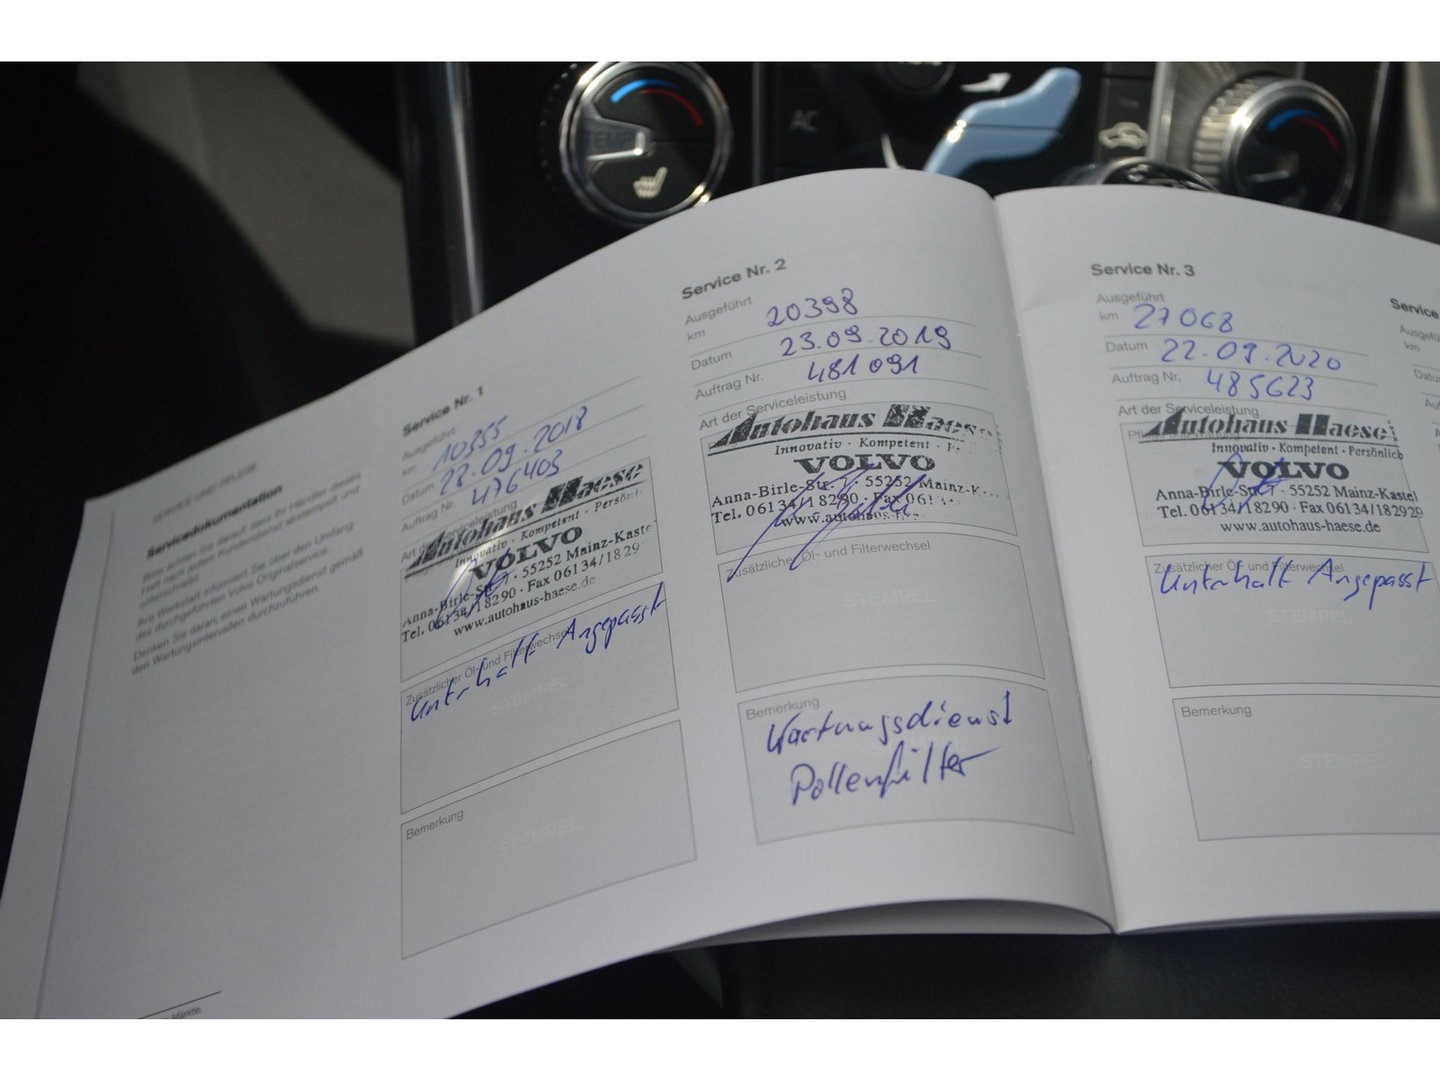 TEMP
AC
SERVICE UND PFLEGE
Servicedokumentation
Bitte achten Sie darauf, dass Ihr Händler dieses
Heft nach jedem Kundendienst abstempelt und
unterschreibt.
Ihre Werkstatt informiert Sie über den Umfang
des durchgeführten Volvo Originalservice.
Denken Sie daran, einen Wartungsdienst gemäß
den Wartungsintervallen durchzuführen.
Märkte.
Service Nr. 1
Ausgeführt
km 10355
Datum 28.09.2018
Auftrag Nr. 476403
Art der Serviceleistung
Autohaus Haese
Innovativ · Kompetent · Persönl
VOLVO
Anna-Birle-Str. 1 · 55252 Mainz-Kaste
Tel. 06134/18290 · Fax 06134/1829
www.autohaus-haese.de
Zusätzlicher Öl- und Filterwechsel
Unterhalt Angepasst
STEMPEL
Bemerkung
STEMPEL
Service Nr. 2
Ausgeführt
km 20398
Datum 23.09.2019
Auftrag Nr. 481091
Art der Serviceleistung
Autohaus Haese
Innovativ · Kompetent · P
VOLVO
Anna-Birle-Str. 1 · 55252 Mainz-K
Tel. 06134/18290 · Fax 061
www.autohaus-
Zusätzlicher Öl- und Filterwechsel
STEMPEL
Bemerkung
Wartungsdienst
Pollenfilter
Service Nr. 3
Ausgeführt
km 27068
Datum 22.09.2020
Auftrag Nr. 485623
Art der Serviceleistung
Autohaus Haese
Innovativ · Kompetent · Persönlich
VOLVO
Anna-Birle-Str. 1 · 55252 Mainz-Kastel
Tel. 06134/18290 · Fax 06134/182929
www.autohaus-haese.de
Zusätzlicher Öl- und Filterwechsel
Unterhalt Angepasst
STEMPEL
Bemerkung
STEMPEL
Service
Ausgefü
km
Datu
Auf